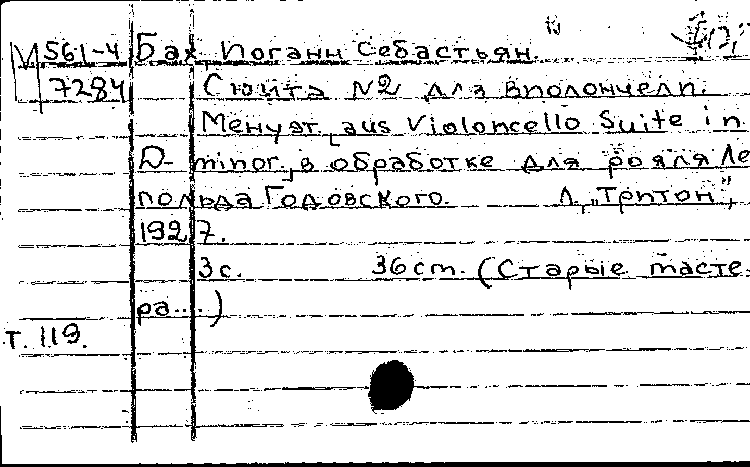 М 561-4 Бах, Иоганн Себастьян.
7284 Сюита №2 для виолончели.
Менуэт [aus Violoncello Suite in
D-minor], в обработке для рояля Ле
польда Годовского. Л, "Тритон",
1927.
3с. 36 ст. (Старые масте
ра....)
Т. 119.